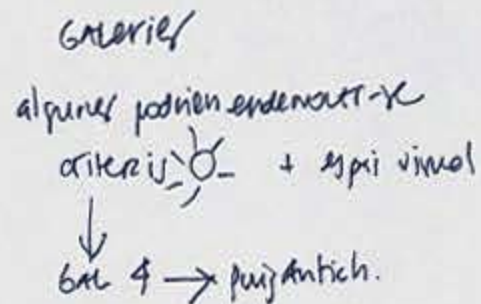 GALERIES
algunes podrien enderrocar-se
criteris + espai visual
GAL 4 → Puig Antich.